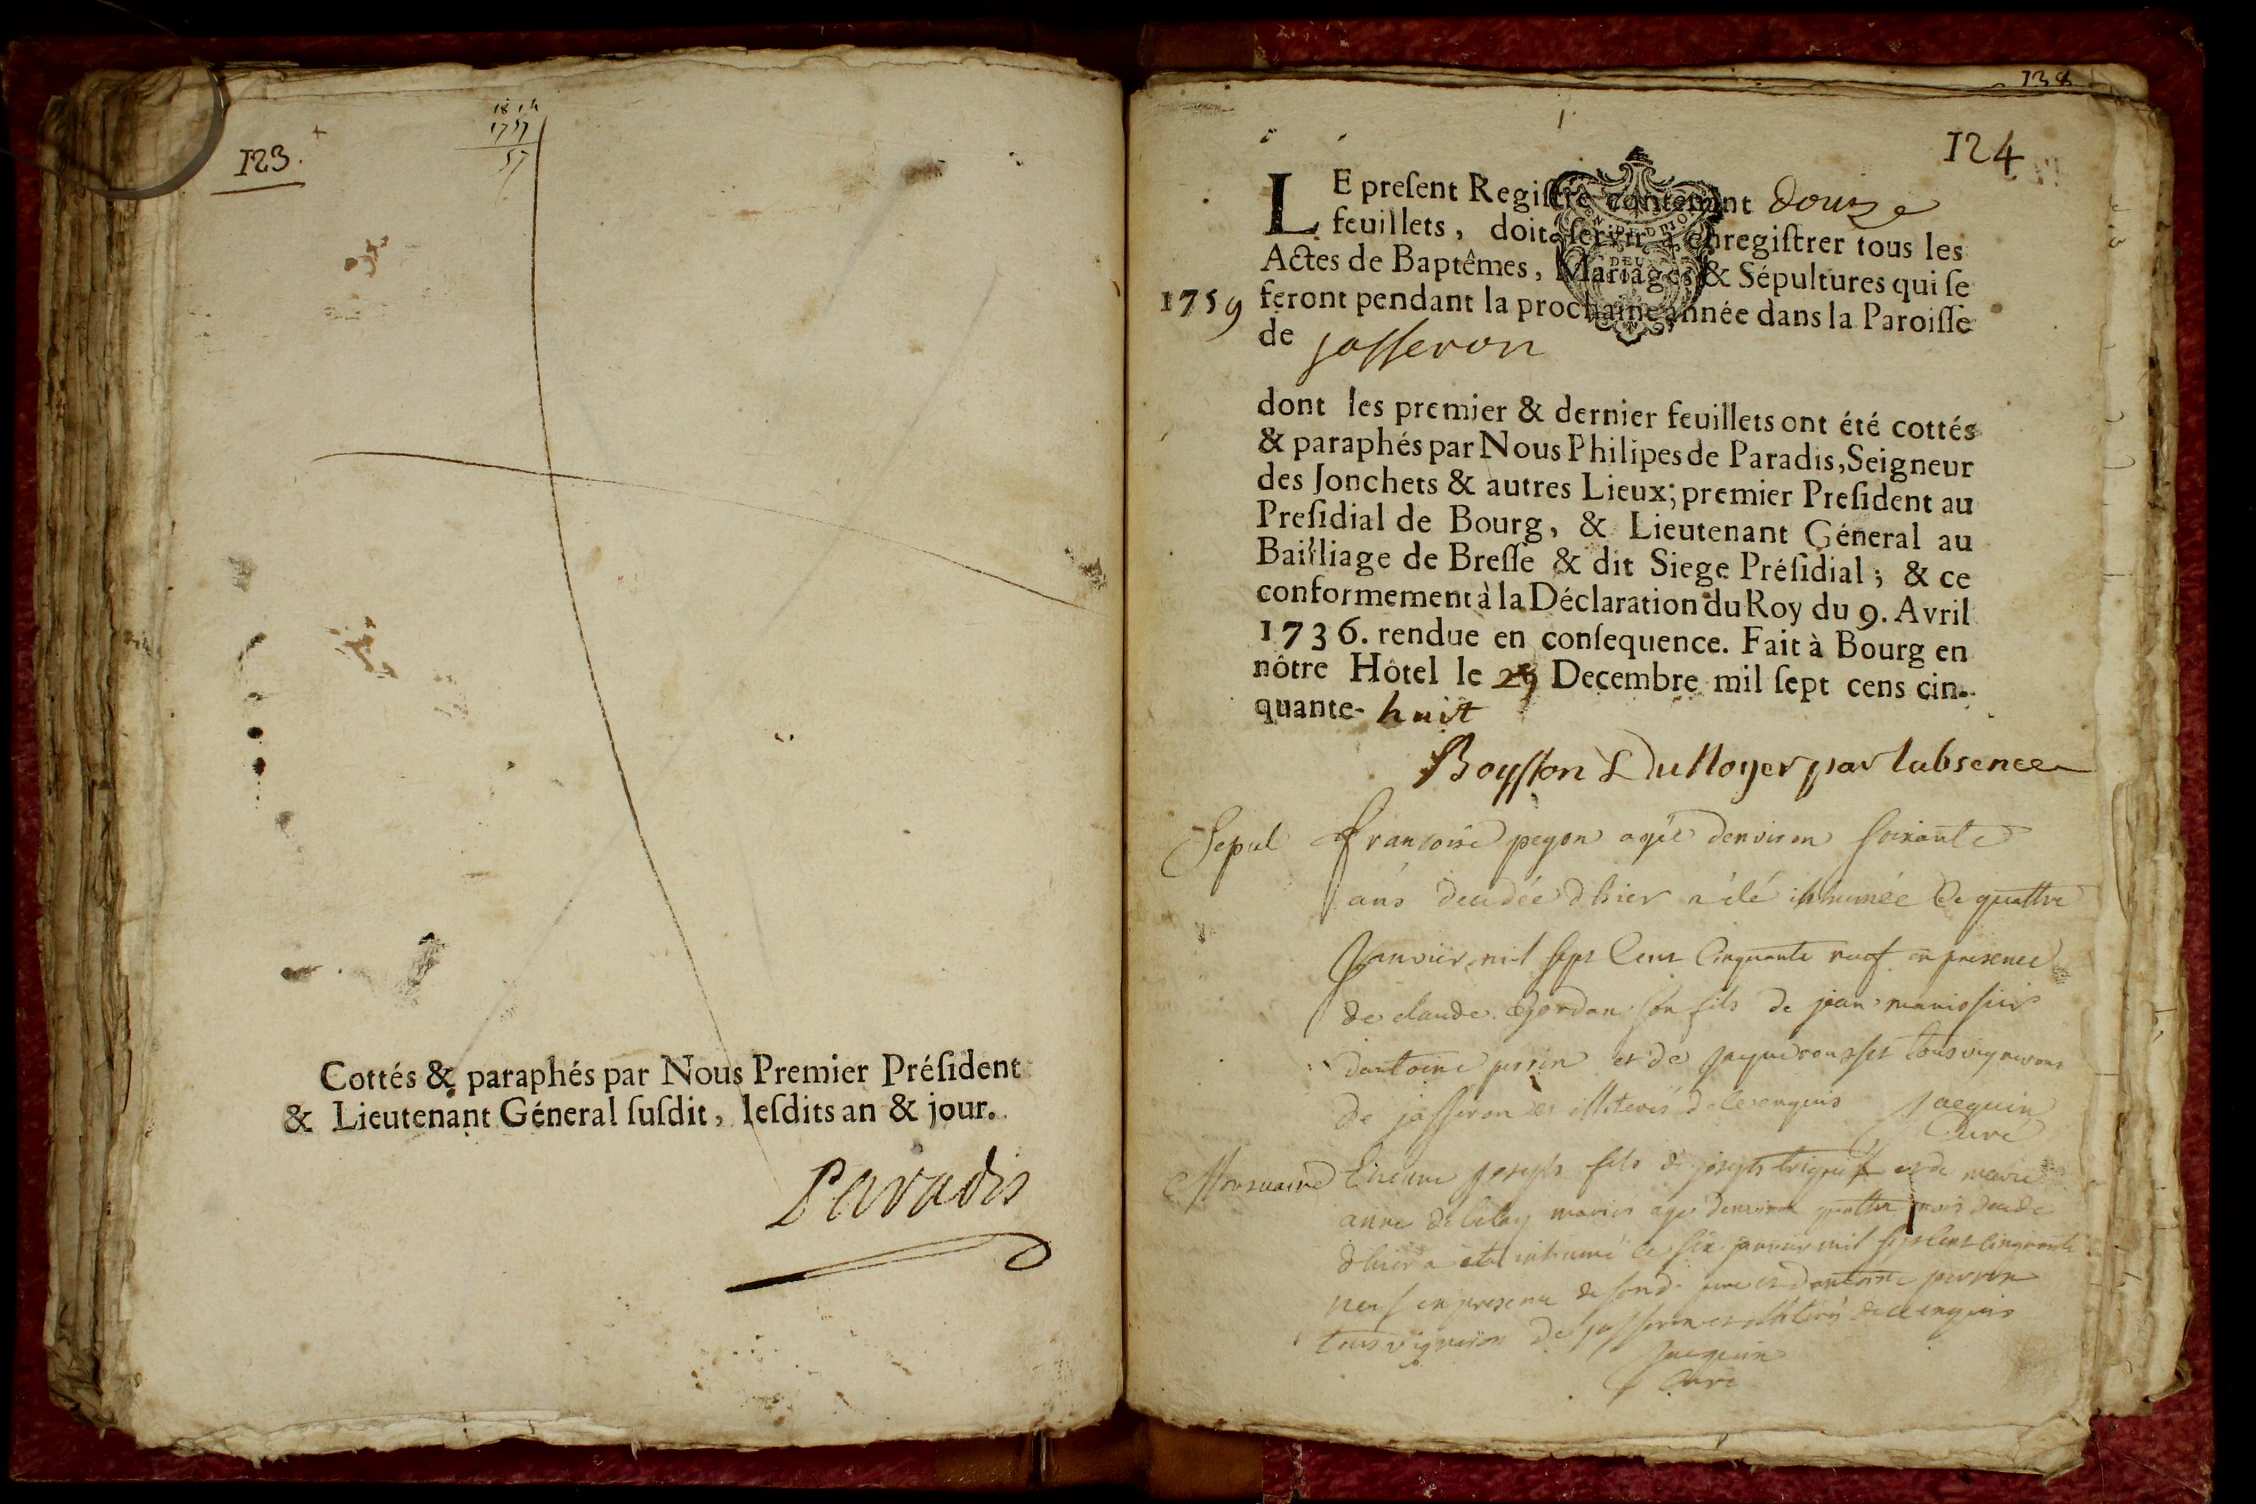 123.
1814
1757
57
Cottés & paraphés par Nous Premier Préſident
& Lieutenant Géneral ſuſdit, leſdits an & jour.
Paradis
138
124
LE preſent Regiſtre contenant douze
feuillets, doit ſervir à enregiſtrer tous les
Actes de Baptêmes, Mariages & Sépultures qui ſe
1759 feront pendant la prochaine année dans la Paroiſſe
de jasseron
dont les premier & dernier feuillets ont été cottés
& paraphés par Nous Philipes de Paradis, Seigneur
des Jonchets & autres Lieux; premier Preſident au
Preſidial de Bourg, & Lieutenant Géneral au
Bailliage de Breſſe & dit Siege Préſidial; & ce
conformement à la Déclaration du Roy du 9. Avril
1736. rendue en conſequence. Fait à Bourg en
nôtre Hôtel le 29 Decembre mil ſept cens cin-
quante- huit
Boysson Dunoyer par labsence
Sepul francoise peyon agée denviron soixante
ans decedée dhier a été inhumée ce quattre
Janvier mil sept Cent Cinquante neuf en presence
de claude son fils de jean
dantoine perrin et de tous vignerons
de jasseron et illiterés de ce enquis Jacquin
Curé
joseph fils de joseph et de marie
anne mariés agé denviron quattre mois decedé
dhier a eté inhumé ce six janvier mil sept Cent Cinquante
neuf en presence de sond. pere et dantoine perrin
tous vignerons de jasseron et illiterés de ce enquis
Jacquin
Curé